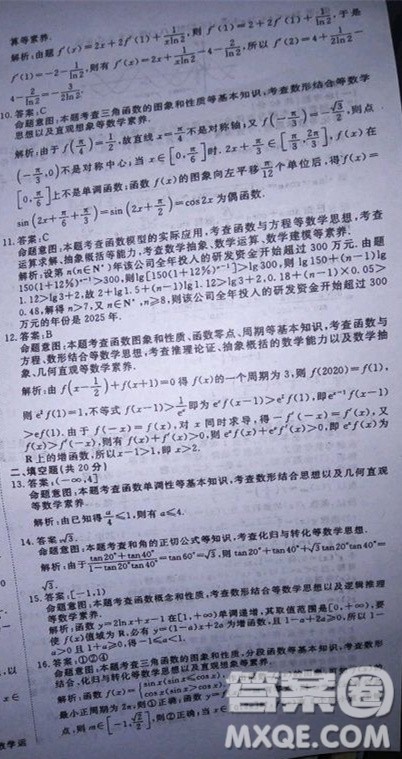 算等素养.
解析:由题 f′(x)=2x+2f′(1)+1/(xln2),则 f′(1)=2+2f′(1)+1/ln2,于是
f′(1)=-2-1/ln2,则有 f′(x)=2x+1/(xln2)-4-2/ln2,所以 f′(2)=4+1/(2ln2)-
4-2/ln2=-3/(2ln2).
10.答案:C
命题意图:本题考查三角函数的图象和性质等基本知识,考查数形结合等数学
思想以及直观想象等数学素养.
解析:由于 f(π/4)=1/2,故直线 x=π/4 不是对称轴;又 f(-π/3)=-√3/2,则点
(-π/3,0)不是对称中心;当 x∈[0,π/6]时,2x+π/3∈[π/3,2π/3],f(x)在
[0,π/6]上不是单调函数;函数 f(x)的图象向左平移π/12个单位后,得 f(x)=
sin(2x+π/6+π/3)=sin(2x+π/2)=cos2x 为偶函数.
11.答案:C
命题意图:本题考查函数模型的实际应用,考查函数与方程等数学思想,考查
运算求解、抽象概括等能力,考查数学抽象、数学运算、数学建模等素养.
解析:设第 n(n∈N*)年该公司全年投入的研发资金开始超过 300 万元.由题
150(1+12%)ⁿ⁻¹>300,则 lg[150(1+12%)ⁿ⁻¹]>lg300,则 lg150+(n-1)lg
1.12>lg3+2,故 2+lg1.5+(n-1)lg1.12>lg3+2,0.18+(n-1)×0.05>
0.48,解得 n>7,又 n∈N*,n≥8,则该公司全年投入的研发资金开始超过 300
万元的年份是 2025 年.
12.答案:B
命题意图:本题考查函数图象和性质、函数零点、周期等基本知识,考查函数与
方程、数形结合等数学思想,考查推理论证、抽象概括的数学能力以及数学抽
象、几何直观等数学素养.
解析:由 f(x-1/2)+f(x+1)=0 得 f(x)的一个周期为 3,则 f(2020)=f(1),
则 e²f(1)=1,不等式 f(x-1)>1/eˣ即为 eˣf(x-1)>e²f(1),即 eˣ⁻¹f(x-1)
>ef(1).由于 f(-x)=f(x),对 x 同时求导,得-f′(-x)=f′(x),又
f(x)>f′(-x),则有 f(x)+f′(x)>0,则 eˣf(x)+eˣf′(x)>0,即 eˣf(x)为
R 上的增函数,所以 x-1>1,即 x>2.
二、填空题(共 20 分)
13.答案:(-∞,4]
命题意图:本题考查函数单调性等基本知识,考查数形结合思想以及几何直观
等数学素养.
解析:由已知得a/4≤1,则有 a≤4.
14.答案:√3.
命题意图:本题考查和角的正切公式等知识,考查化归与转化等数学思想.
解析:由于(tan20°+tan40°)/(1-tan20°tan40°)=tan60°=√3.则 tan20°+tan40°+√3tan20°tan40°=
√3.
15.答案:[-1,1)
命题意图:本题考查函数概念和性质,考查数形结合等数学思想以及逻辑推理
等数学素养.
解析:函数 y=2lnx+x-1 在[1,+∞)单调递增,其取值范围是[0,+∞),要
使 f(x)值域为 R,必有 y=(1-a)x+2a 为增函数,且 1-a+2a≥0,所以 1-
a>0 且 1+a≥0,得-1≤a<1.
16.答案:①②④
命题意图:本题考查三角函数的图象和性质,分段函数等基本知识,考查数形
结合、化归与转化等数学思想以及直观想象等素养.
解析:函数 f(x)={sinx(sinx≤cosx),
最小正周期为 2π,则①正确;当
点,则 m∈[-1,√2/2],则②正确;当 x∈
x∈
数学运
答案圈
MXQE.COM